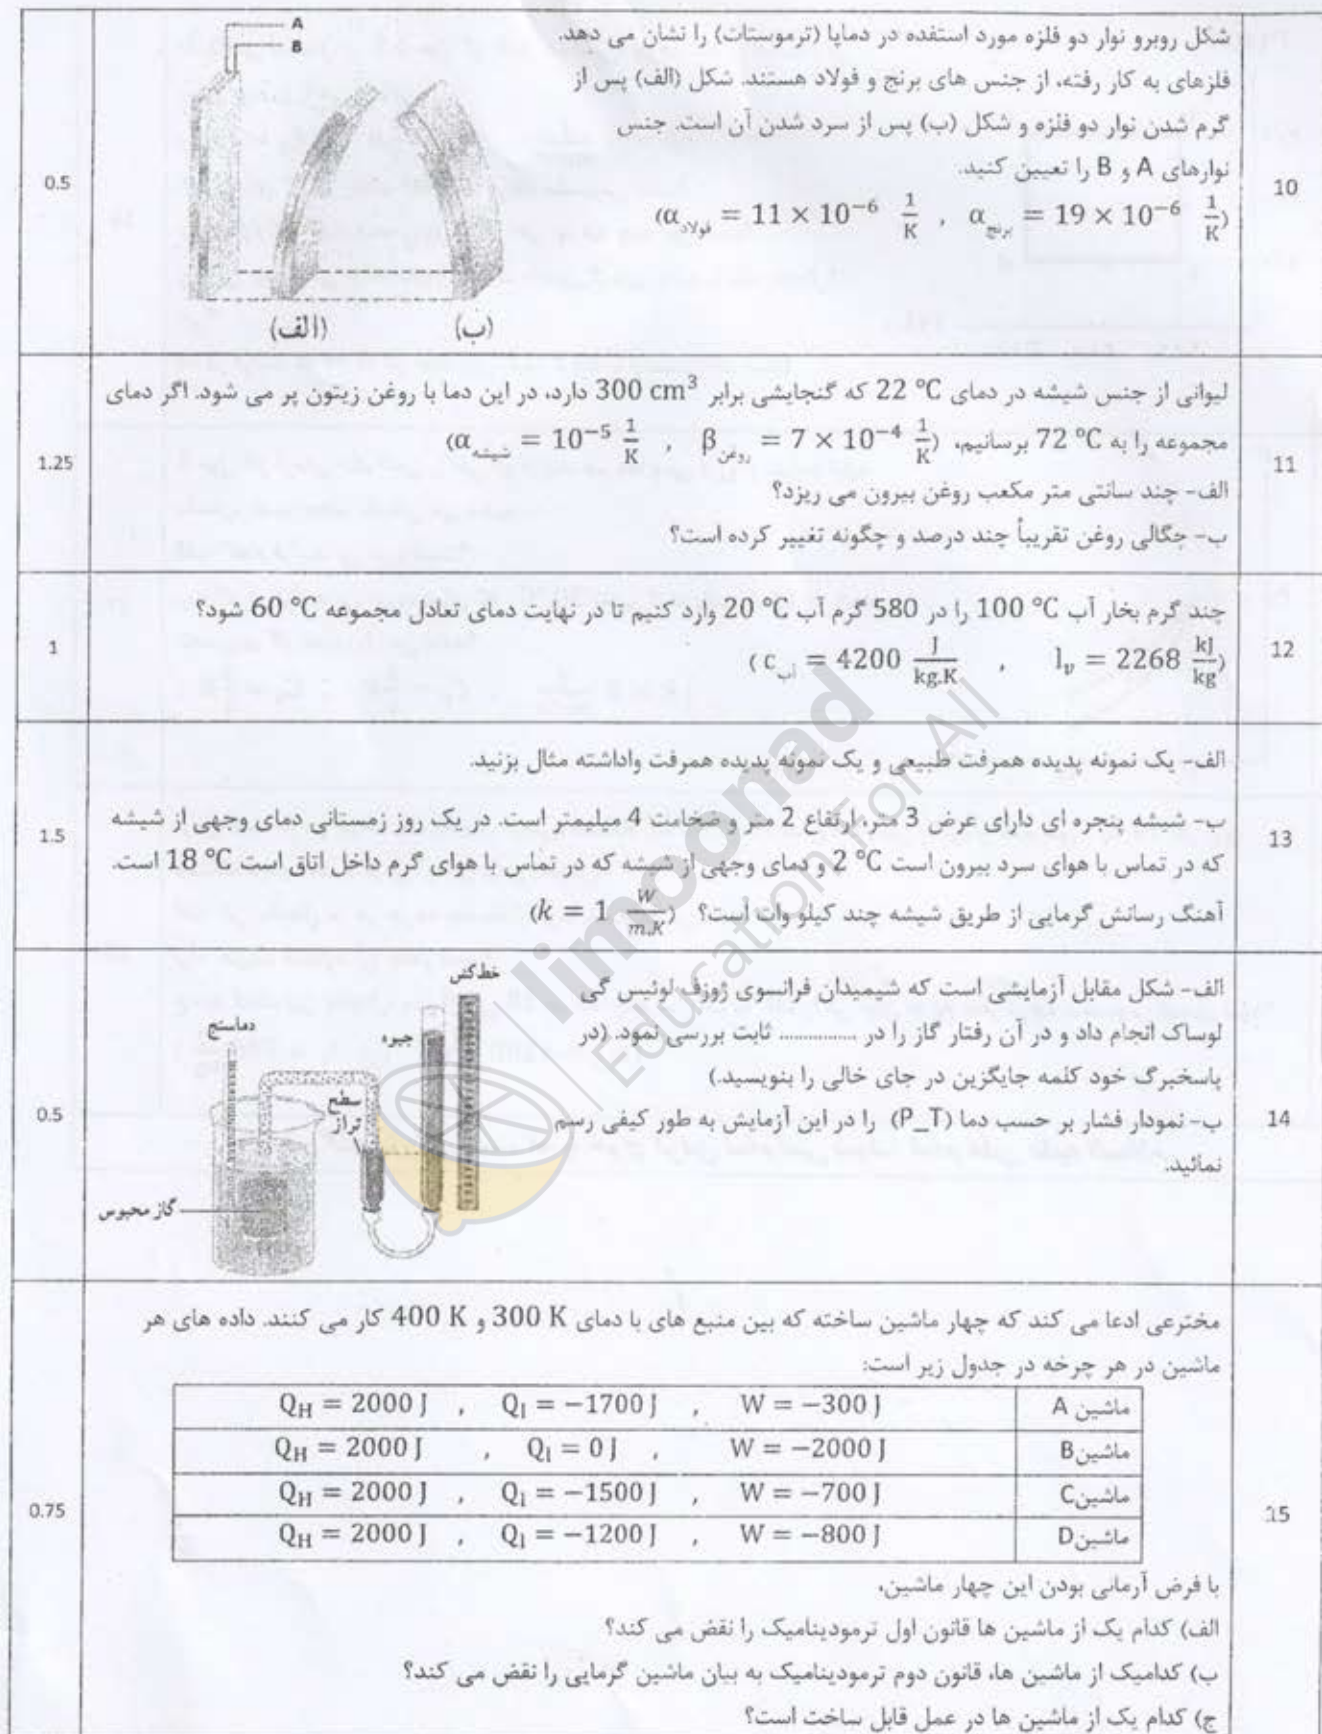 10
شکل روبرو نوار دو فلزه مورد استفده در دماپا (ترموستات) را نشان می دهد.
فلزهای به کار رفته، از جنس های برنج و فولاد هستند. شکل (الف) پس از
گرم شدن نوار دو فلزه و شکل (ب) پس از سرد شدن آن است. جنس
نوارهای A و B را تعیین کنید.
(α فولاد = 11 × 10⁻⁶ 1/K , α برنج = 19 × 10⁻⁶ 1/K)
A
B
(الف)
(ب)
0.5
11
لیوانی از جنس شیشه در دمای 22 °C که گنجایشی برابر 300 cm³ دارد، در این دما با روغن زیتون پر می شود. اگر دمای
مجموعه را به 72 °C برسانیم، (α شیشه = 10⁻⁵ 1/K , β روغن = 7 × 10⁻⁴ 1/K)
الف- چند سانتی متر مکعب روغن بیرون می ریزد؟
ب- چگالی روغن تقریباً چند درصد و چگونه تغییر کرده است؟
1.25
12
چند گرم بخار آب 100 °C را در 580 گرم آب 20 °C وارد کنیم تا در نهایت دمای تعادل مجموعه 60 °C شود؟
(c آب = 4200 J/kg.K , lᵥ = 2268 kJ/kg)
1
13
الف- یک نمونه پدیده همرفت طبیعی و یک نمونه پدیده همرفت واداشته مثال بزنید.
ب- شیشه پنجره ای دارای عرض 3 متر، ارتفاع 2 متر و ضخامت 4 میلیمتر است. در یک روز زمستانی دمای وجهی از شیشه
که در تماس با هوای سرد بیرون است 2 °C و دمای وجهی از شیشه که در تماس با هوای گرم داخل اتاق است 18 °C است.
آهنگ رسانش گرمایی از طریق شیشه چند کیلو وات است؟ (k = 1 W/m.K)
1.5
14
الف- شکل مقابل آزمایشی است که شیمیدان فرانسوی ژوزف لوئیس گی
لوساک انجام داد و در آن رفتار گاز را در ................ ثابت بررسی نمود. (در
پاسخبرگ خود کلمه جایگزین در جای خالی را بنویسید.)
ب- نمودار فشار بر حسب دما (P_T) را در این آزمایش به طور کیفی رسم
نمائید.
خط‌کش
جیوه
دماسنج
سطح
تراز
گاز محبوس
0.5
15
مخترعی ادعا می کند که چهار ماشین ساخته که بین منبع های با دمای 300 K و 400 K کار می کنند. داده های هر
ماشین در هر چرخه در جدول زیر است:
ماشین A Q_H = 2000 J , Q_l = −1700 J , W = −300 J
ماشین B Q_H = 2000 J , Q_l = 0 J , W = −2000 J
ماشین C Q_H = 2000 J , Q_l = −1500 J , W = −700 J
ماشین D Q_H = 2000 J , Q_l = −1200 J , W = −800 J
با فرض آرمانی بودن این چهار ماشین،
الف) کدام یک از ماشین ها قانون اول ترمودینامیک را نقض می کند؟
ب) کدامیک از ماشین ها، قانون دوم ترمودینامیک به بیان ماشین گرمایی را نقض می کند؟
ج) کدام یک از ماشین ها در عمل قابل ساخت است؟
0.75
limoonad
Education For All